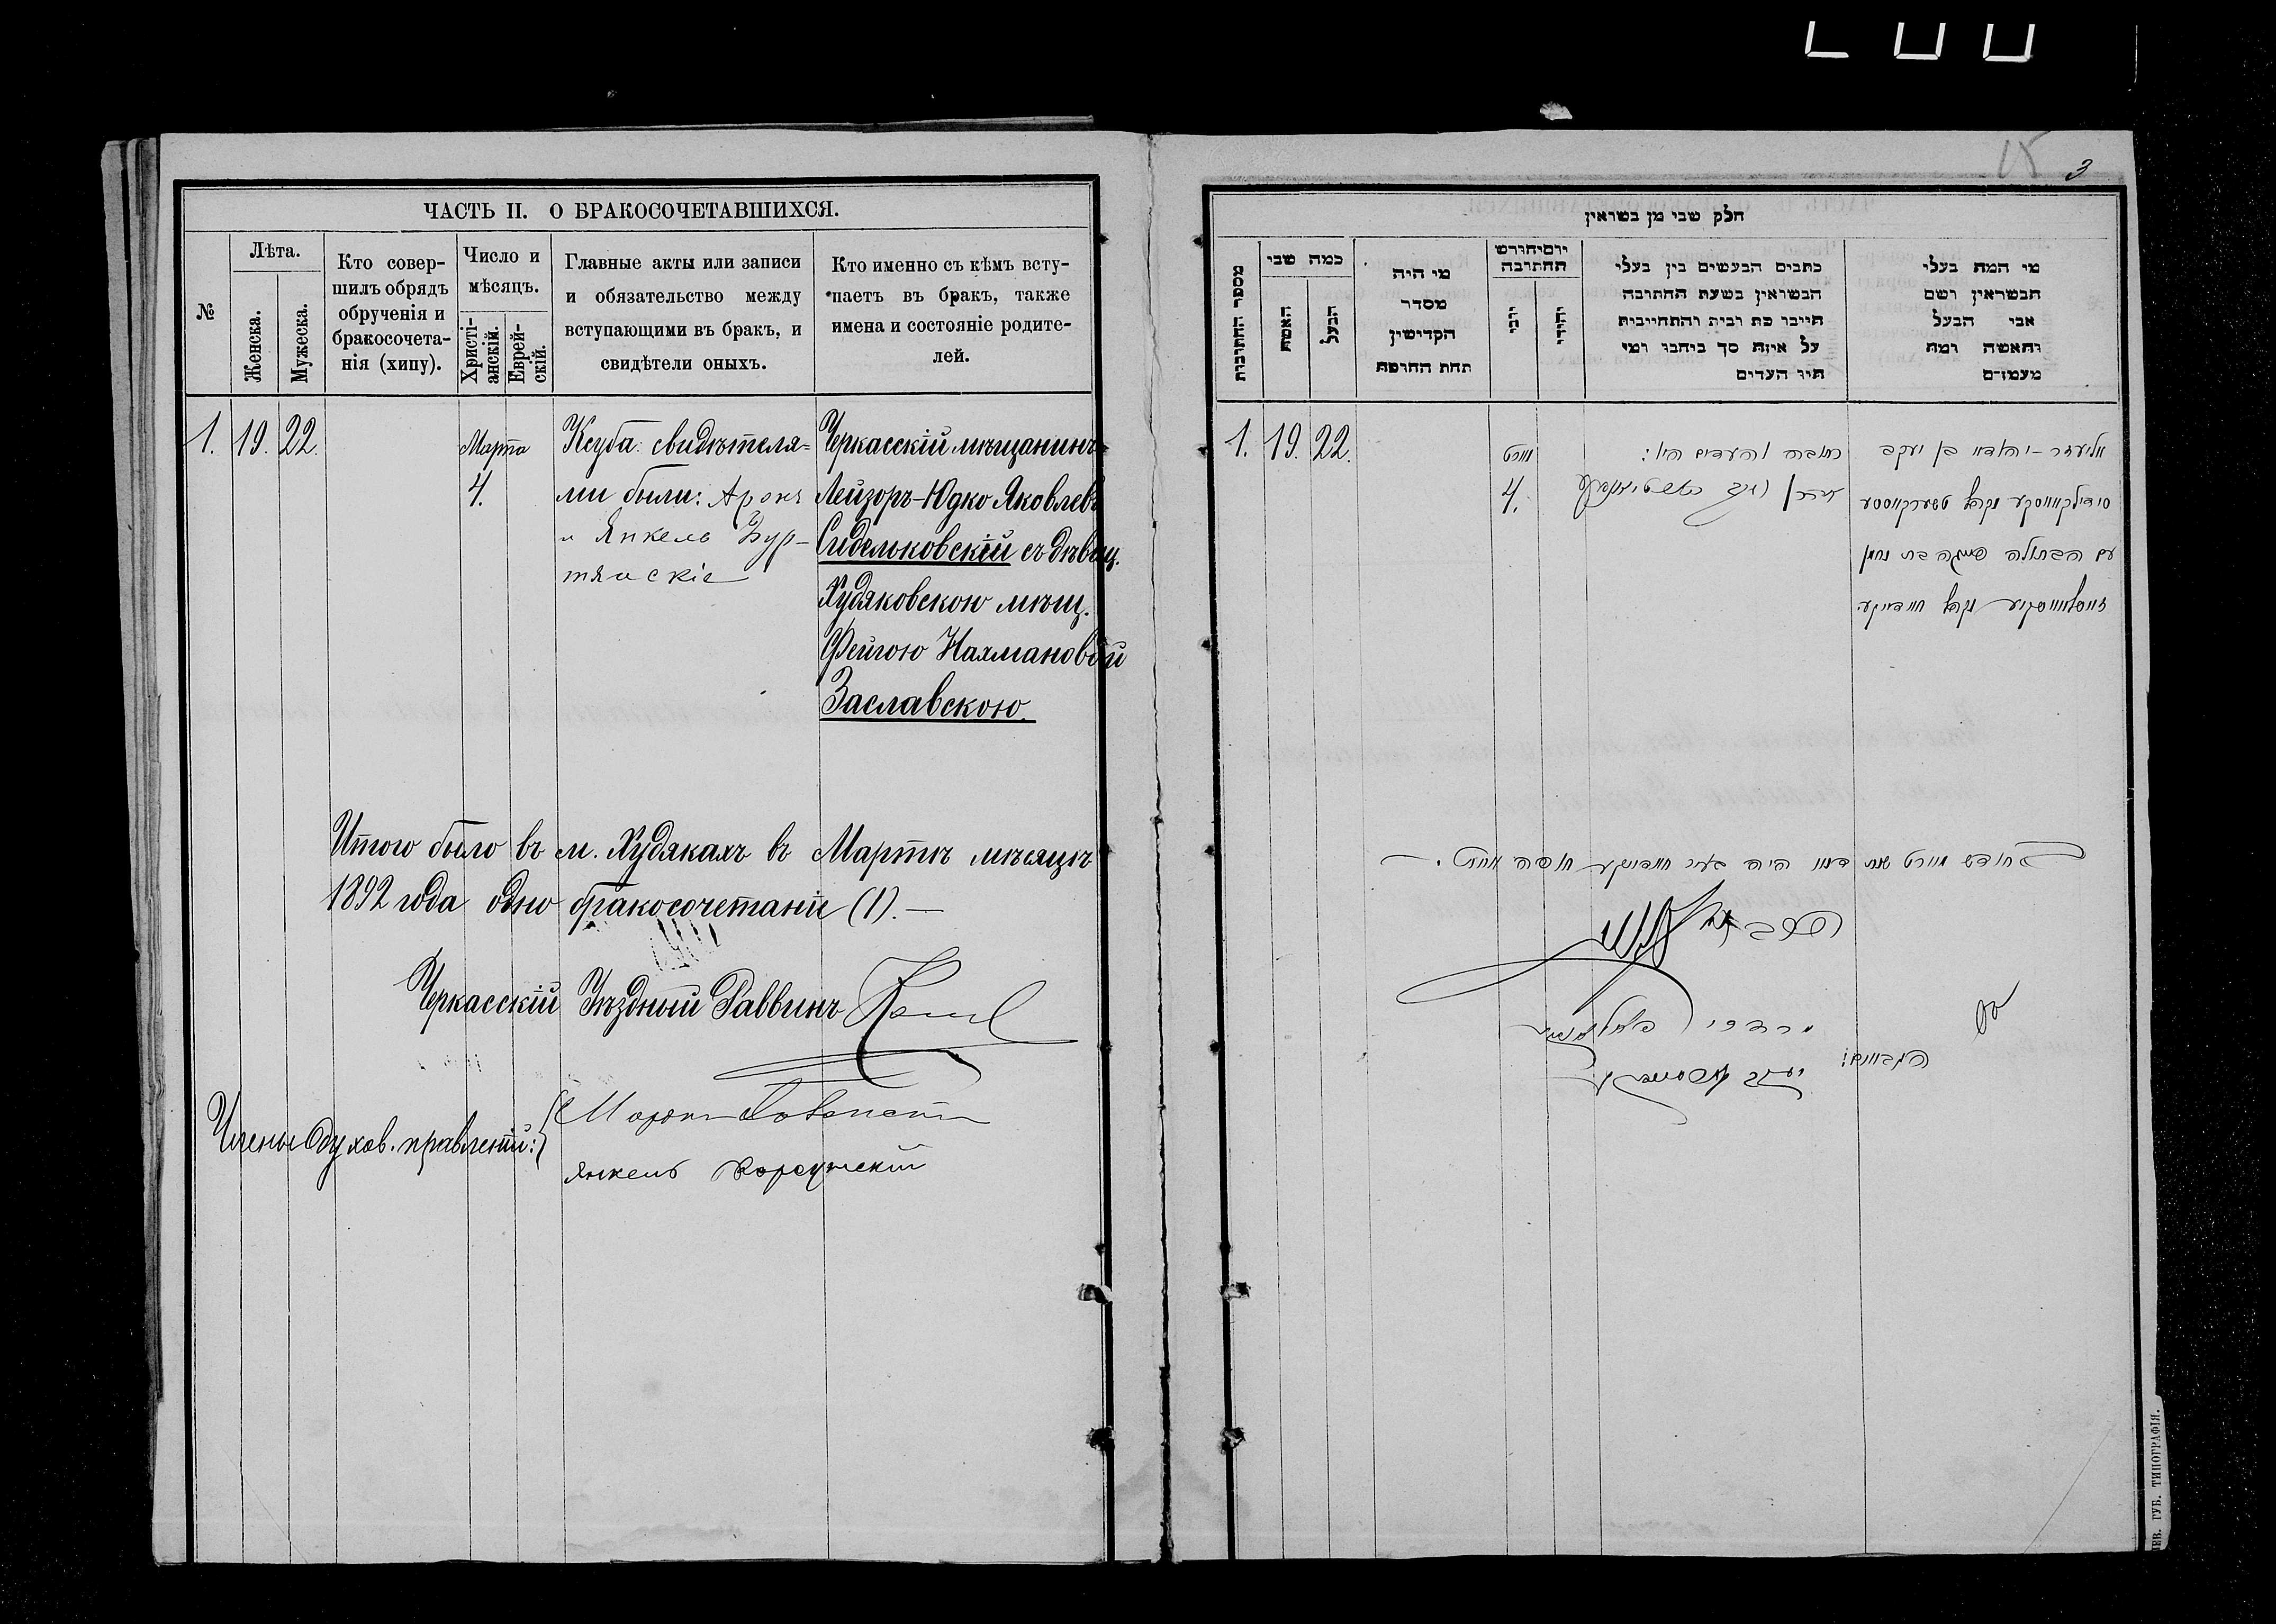 ЧАСТЬ II. О БРАКОСОЧЕТАВШИХСЯ.
№
Лѣта.
Женска.
Мужеска.
Кто совер-
шилъ обрядъ
обрученія и
бракосочета-
нія (хипу).
Число и
мѣсяцъ.
Христі-
анскій.
Еврей-
скій.
Главные акты или записи
и обязательство между
вступающими въ бракъ, и
свидѣтели оныхъ.
Кто именно съ кѣмъ всту-
паетъ въ бракъ, также
имена и состояніе родите-
лей.
1. 19. 22.
Марта
4.
Ксуба: свидѣтеля-
ми были: Аронъ
и Янкель Бур-
тянскіе
Черкасскій мѣщанинъ
Лейзоръ-Юдко Яковлевъ
Сидельковскій съ дѣвиц.
Худяковскою мѣщ.
Фейгою Нахмановой
Заславскою.
Итого было въ м. Худякахъ въ Мартѣ мѣсяцѣ
1892 года одно бракосочетаніе (1). —
Черкасскій Уѣздный Раввинъ
Члены духов. правленій:
Янкель Корсунскій
15 3
חלק שבי מן בשראין
מספר החתובות
כמה שבי
האשה
הבעל
מי היה
מסדר
הקדישין
תחת החופה
יום יחורש
החתובה
יובי
יהודי
כתבים הבעשים בין בעלי
הבשואין בשעת החתובה
חייבו כת ובית והתחייבית
על איזה סך ביחבו ומי
היו העדים
מי המה בעלי
הבשראין ושם
אבי הבעל
והאשה ומה
מעמדם
1. 19. 22.
מארט
4.
כתובה והעדים היו:
אליעזר - יהודא בן יעקב
סידילקאווסקע
עם הבתולה פייגה בת נחמן
זאסלאווסקיע
בחודש מארט שנת
ГУБ. ТИПОГРАФІЯ.